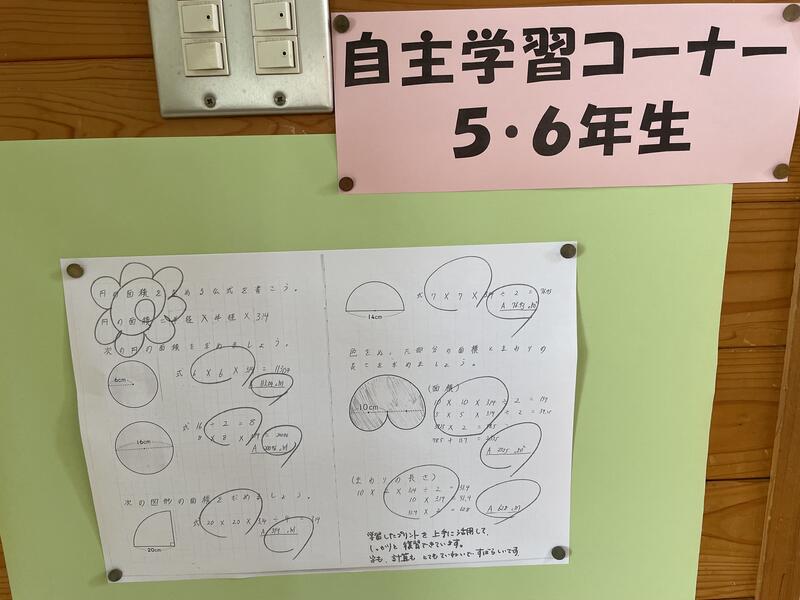 自主学習コーナー
5・6年生
円の面積を求める公式を書こう。
円の面積=半径×半径×3.14
次の円の面積を求めましょう。
6cm
式 6×6×3.14=113.04
16cm
式 16÷2=8
8×8×3.14
次の図形の面積を求めましょう。
20cm
式 20×20×3.14÷4
14cm
式 7×7×3.14÷2=76.93
色をぬった部分の面積とまわりの
長さを求めましょう。
10cm
(面積)
10×10×3.14÷2=157
5×5×3.14÷2=39.25
(まわりの長さ)
10×2×3.14÷2=31.4
10×3.14 31.4
31.4×2=62.8
学習したプリントを上手に活用して、
しっかりと復習できています。
字も、計算も とてもていねいで すばらしいです